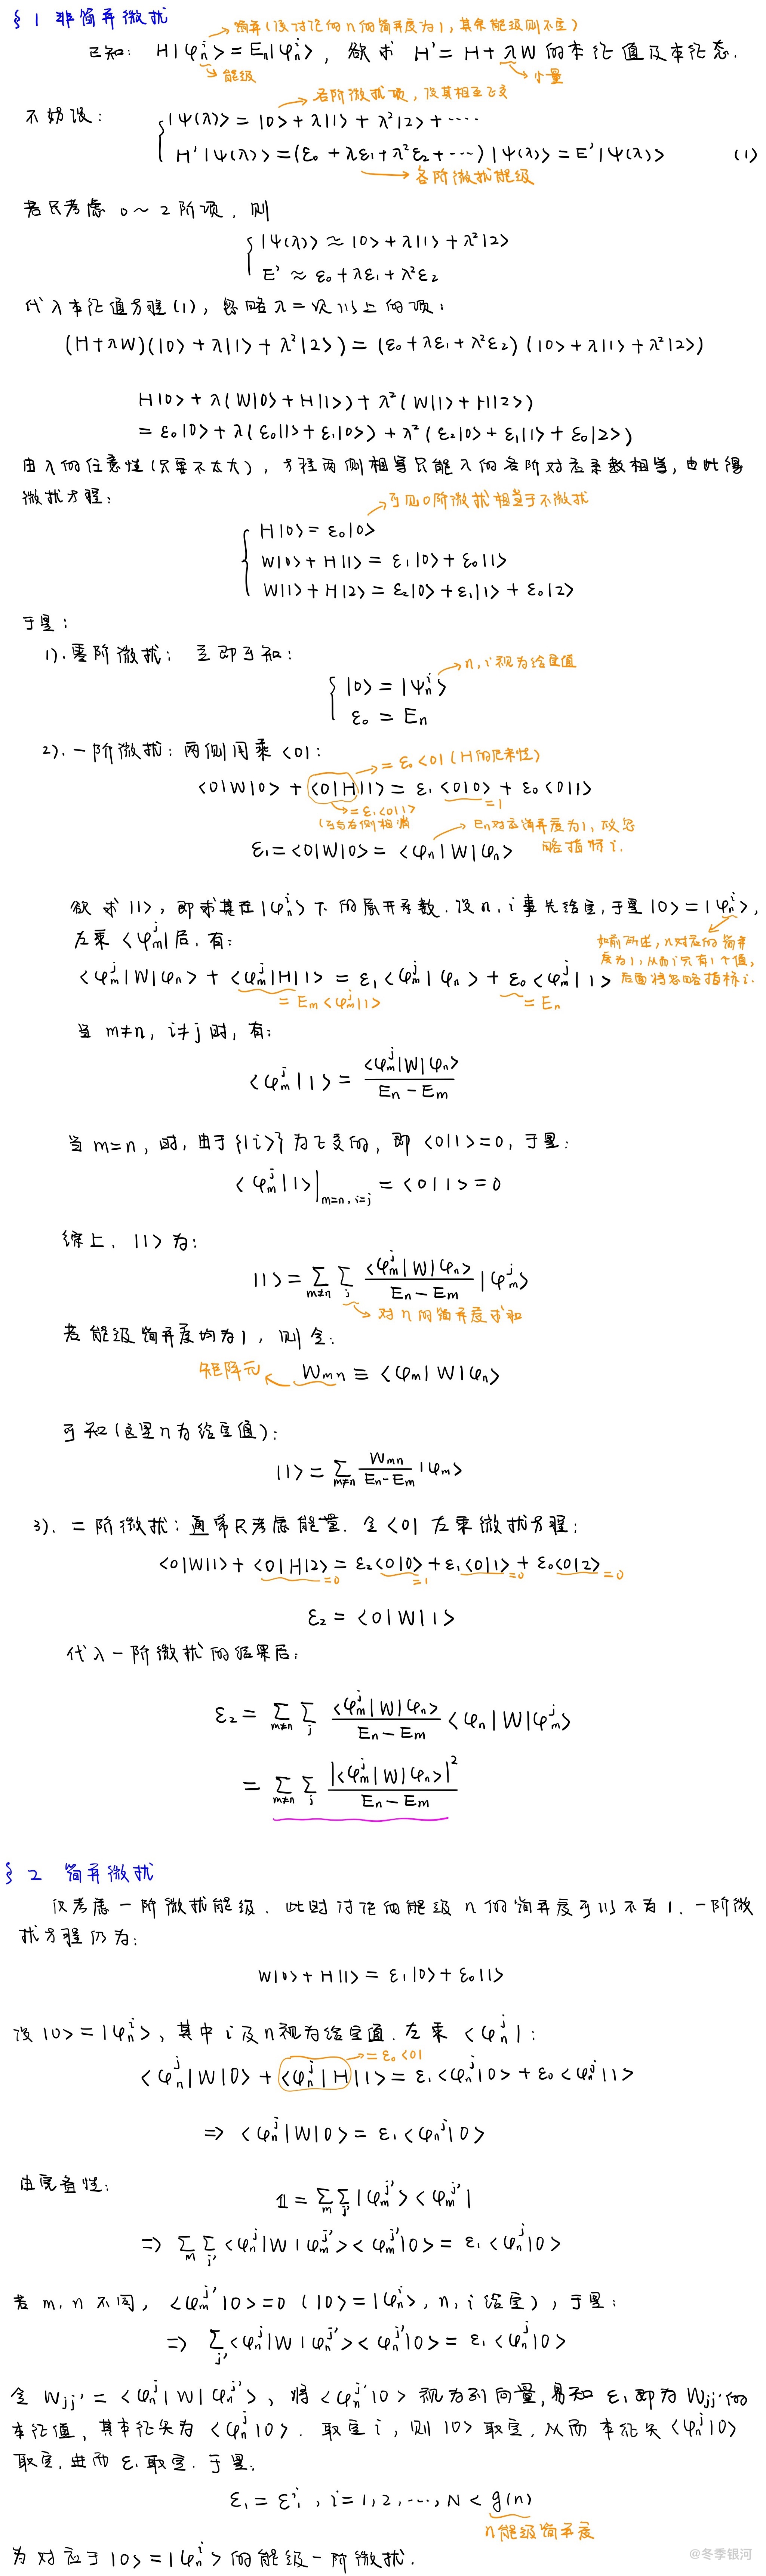 §1 非简并微扰
简并(该讨论的n的简并度为1,其余能级则不定)
已知: H|φₙⁱ> = Eₙ|φₙⁱ>, 欲求 H' = H + λW 的本征值及本征态.
能级
小量
各阶微扰项, 设其相互正交
不妨设: |ψ(λ)> = |0> + λ|1> + λ²|2> + ····
H'|ψ(λ)> = (ε₀ + λε₁ + λ²ε₂ + ···)|ψ(λ)> = E'|ψ(λ)> (1)
各阶微扰能级
若只考虑 0~2 阶项, 则
|ψ(λ)> ≈ |0> + λ|1> + λ²|2>
E' ≈ ε₀ + λε₁ + λ²ε₂
代入本征值方程(1), 忽略λ二次以上的项:
(H+λW)(|0> + λ|1> + λ²|2>) = (ε₀ + λε₁ + λ²ε₂)(|0> + λ|1> + λ²|2>)
H|0> + λ(W|0> + H|1>) + λ²(W|1> + H|2>)
= ε₀|0> + λ(ε₀|1> + ε₁|0>) + λ²(ε₂|0> + ε₁|1> + ε₀|2>)
由λ的任意性(只要不太大), 方程两侧相等只能λ的各阶对应系数相等, 由此得
微扰方程:
可见0阶微扰相当于不微扰
H|0> = ε₀|0>
W|0> + H|1> = ε₁|0> + ε₀|1>
W|1> + H|2> = ε₂|0> + ε₁|1> + ε₀|2>
于是:
1). 零阶微扰: 立即可知:
n,i视为给定值
|0> = |ψₙⁱ>
ε₀ = Eₙ
2). 一阶微扰: 两侧同乘 <0|:
= ε₀<0| (H的厄米性)
<0|W|0> + <0|H|1> = ε₁<0|0> + ε₀<0|1>
= ε₁<0|1>
=1
(可与右侧相消
Eₙ对应简并度为1, 故忽
略指标i.
ε₁ = <0|W|0> = <φₙ|W|φₙ>
欲求|1>, 即求其在|φₙⁱ>下的展开系数. 设n,i事先给定, 于是|0> = |φₙⁱ>,
左乘<φₘʲ|后, 有:
如前所述, n对应的简并
度为1, 从而i只有1个值,
后面将忽略指标i.
<φₘʲ|W|φₙ> + <φₘʲ|H|1> = ε₁<φₘʲ|φₙ> + ε₀<φₘʲ|1>
= Eₘ<φₘʲ|1>
= Eₙ
当 m≠n, i≠j 时, 有:
<φₘʲ|1> = <φₘʲ|W|φₙ> / (Eₙ - Eₘ)
当 m=n, 时, 由于{|i>}为正交的, 即 <0|1>=0, 于是:
<φₘʲ|1>|ₘ₌ₙ,ᵢ₌ⱼ = <0|1> = 0
综上, |1>为:
|1> = Σ_{m≠n} Σ_j <φₘʲ|W|φₙ> / (Eₙ - Eₘ) |φₘʲ>
对n的简并度求和
若能级简并度均为1, 则令:
矩阵元
Wₘₙ ≡ <φₘ|W|φₙ>
可知(这里n为给定值):
|1> = Σ_{m≠n} Wₘₙ / (Eₙ-Eₘ) |φₘ>
3). 二阶微扰: 通常只考虑能量. 令<0|左乘微扰方程:
<0|W|1> + <0|H|2> = ε₂<0|0> + ε₁<0|1> + ε₀<0|2>
=0
=1
=0
=0
ε₂ = <0|W|1>
代入一阶微扰的结果后:
ε₂ = Σ_{m≠n} Σ_j <φₘʲ|W|φₙ> / (Eₙ - Eₘ) <φₙ|W|φₘʲ>
= Σ_{m≠n} Σ_j |<φₘʲ|W|φₙ>|² / (Eₙ - Eₘ)
§2 简并微扰
仅考虑一阶微扰能级. 此时讨论的能级n的简并度可以不为1. 一阶微
扰方程仍为:
W|0> + H|1> = ε₁|0> + ε₀|1>
设|0> = |φₙⁱ>, 其中i及n视为给定值. 左乘<φₙʲ|:
= ε₀<0|
<φₙʲ|W|0> + <φₙʲ|H|1> = ε₁<φₙʲ|0> + ε₀<φₙʲ|1>
⇒ <φₙʲ|W|0> = ε₁<φₙʲ|0>
由完备性:
𝟙 = Σ_m Σ_{j'} |φₘʲ'><φₘʲ'|
⇒ Σ_m Σ_{j'} <φₙʲ|W|φₘʲ'><φₘʲ'|0> = ε₁<φₙʲ|0>
若m,n不同, <φₘʲ'|0>=0 (|0>=|φₙⁱ>, n,i给定), 于是:
⇒ Σ_{j'} <φₙʲ|W|φₙʲ'><φₙʲ'|0> = ε₁<φₙʲ|0>
令 Wⱼⱼ' = <φₙʲ|W|φₙʲ'>, 将<φₙʲ'|0>视为列向量, 易知ε₁即为Wⱼⱼ'的
本征值, 其本征矢为<φₙʲ|0>. 取定i, 则|0>取定, 从而本征矢<φₙʲ|0>
取定, 进而ε₁取定. 于是:
ε₁ = ε₁ⁱ, i=1,2,···,N < g(n)
n能级简并度
为对应于|0>=|φₙⁱ>的能级一阶微扰.
@冬季银河